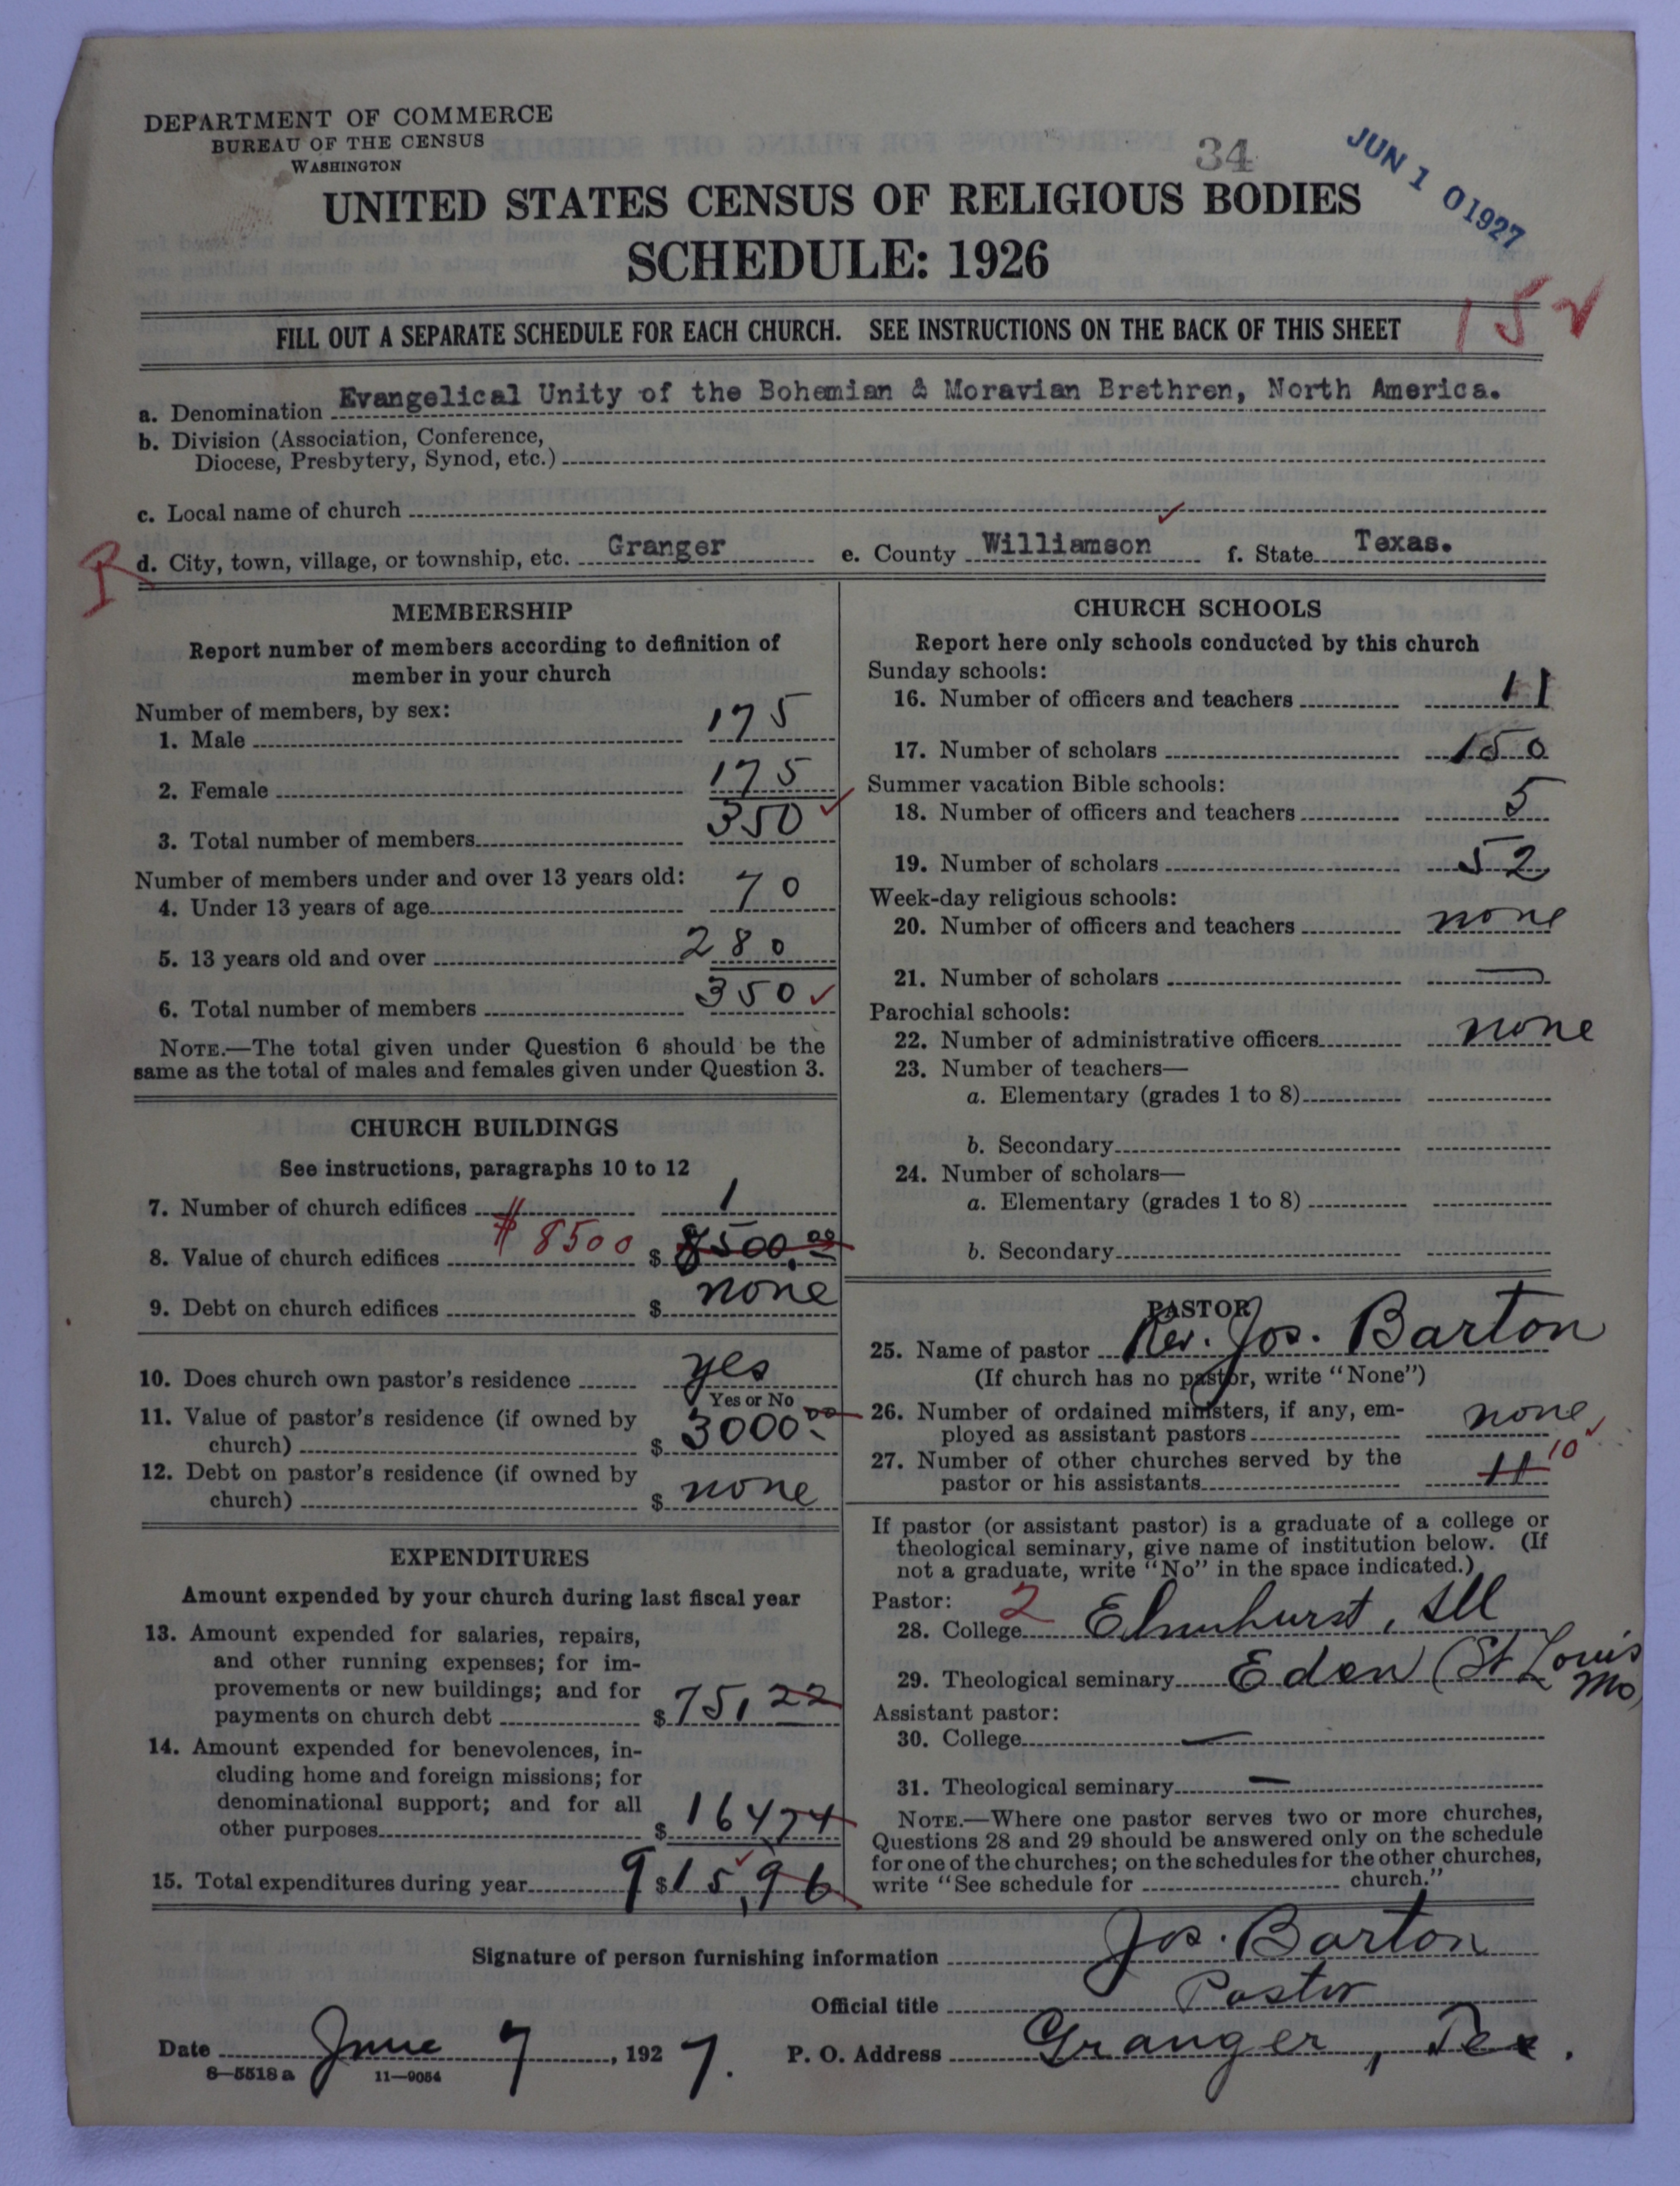 DEPARTMENT OF COMMERCE
BUREAU OF THE CENSUS
WASHINGTON
34
JUN 10 1927
UNITED STATES CENSUS OF RELIGIOUS BODIES
SCHEDULE: 1926
FILL OUT A SEPARATE SCHEDULE FOR EACH CHURCH. SEE INSTRUCTIONS ON THE BACK OF THIS SHEET
a. Denomination Evangelical Unity of the Bohemian & Moravian Brethren, North America.
b. Division (Association, Conference,
Diocese, Presbytery, Synod, etc.)
c. Local name of church
R d. City, town, village, or township, etc. Granger e. County Williamson f. State Texas.
MEMBERSHIP
Report number of members according to definition of
member in your church
Number of members, by sex:
1. Male 175
2. Female 175
3. Total number of members 350 ✓
Number of members under and over 13 years old:
4. Under 13 years of age 70
5. 13 years old and over 280
6. Total number of members 350 ✓
NOTE.—The total given under Question 6 should be the
same as the total of males and females given under Question 3.
CHURCH BUILDINGS
See instructions, paragraphs 10 to 12
7. Number of church edifices 1
8. Value of church edifices $8500 $ 8500.00
9. Debt on church edifices $ none
10. Does church own pastor's residence yes
Yes or No
11. Value of pastor's residence (if owned by
church) $ 3000.00
12. Debt on pastor's residence (if owned by
church) $ none
EXPENDITURES
Amount expended by your church during last fiscal year
13. Amount expended for salaries, repairs,
and other running expenses; for im-
provements or new buildings; and for
payments on church debt $ 751.22
14. Amount expended for benevolences, in-
cluding home and foreign missions; for
denominational support; and for all
other purposes $ 164 74
15. Total expenditures during year $ 915,96
CHURCH SCHOOLS
Report here only schools conducted by this church
Sunday schools:
16. Number of officers and teachers 11
17. Number of scholars 150
Summer vacation Bible schools:
18. Number of officers and teachers 5
19. Number of scholars 52
Week-day religious schools:
20. Number of officers and teachers none
21. Number of scholars —
Parochial schools:
22. Number of administrative officers none
23. Number of teachers—
a. Elementary (grades 1 to 8)
b. Secondary
24. Number of scholars—
a. Elementary (grades 1 to 8)
b. Secondary
PASTOR
25. Name of pastor Rev. Jos. Barton
(If church has no pastor, write "None")
26. Number of ordained ministers, if any, em-
ployed as assistant pastors none ✓
27. Number of other churches served by the
pastor or his assistants 11 10
If pastor (or assistant pastor) is a graduate of a college or
theological seminary, give name of institution below. (If
not a graduate, write "No" in the space indicated.)
Pastor: 2
28. College Elmhurst, Ill
29. Theological seminary Eden (St Louis
Mo)
Assistant pastor:
30. College —
31. Theological seminary —
NOTE.—Where one pastor serves two or more churches,
Questions 28 and 29 should be answered only on the schedule
for one of the churches; on the schedules for the other churches,
write "See schedule for church."
Signature of person furnishing information Jos. Barton
Official title Pastor
Date June 7, 1927. P. O. Address Granger, Tex.
8—5518 a 11—9054